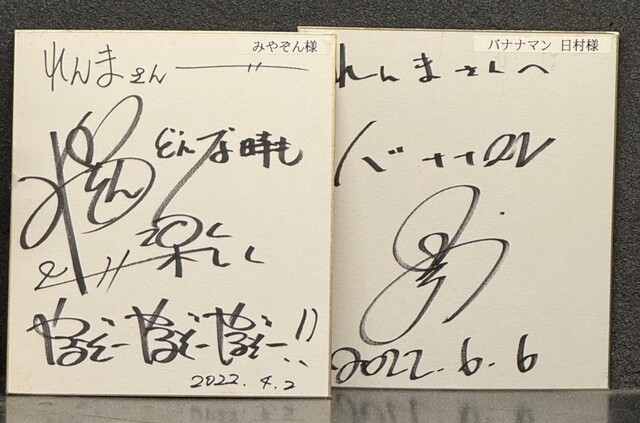 みやぞん様
れんまさんへ
どんな時も
楽しく
やるぞーやるぞーやるぞー!!
2022.4.2
バナナマン 日村様
れんまさんへ
バナナマン
2022.6.6